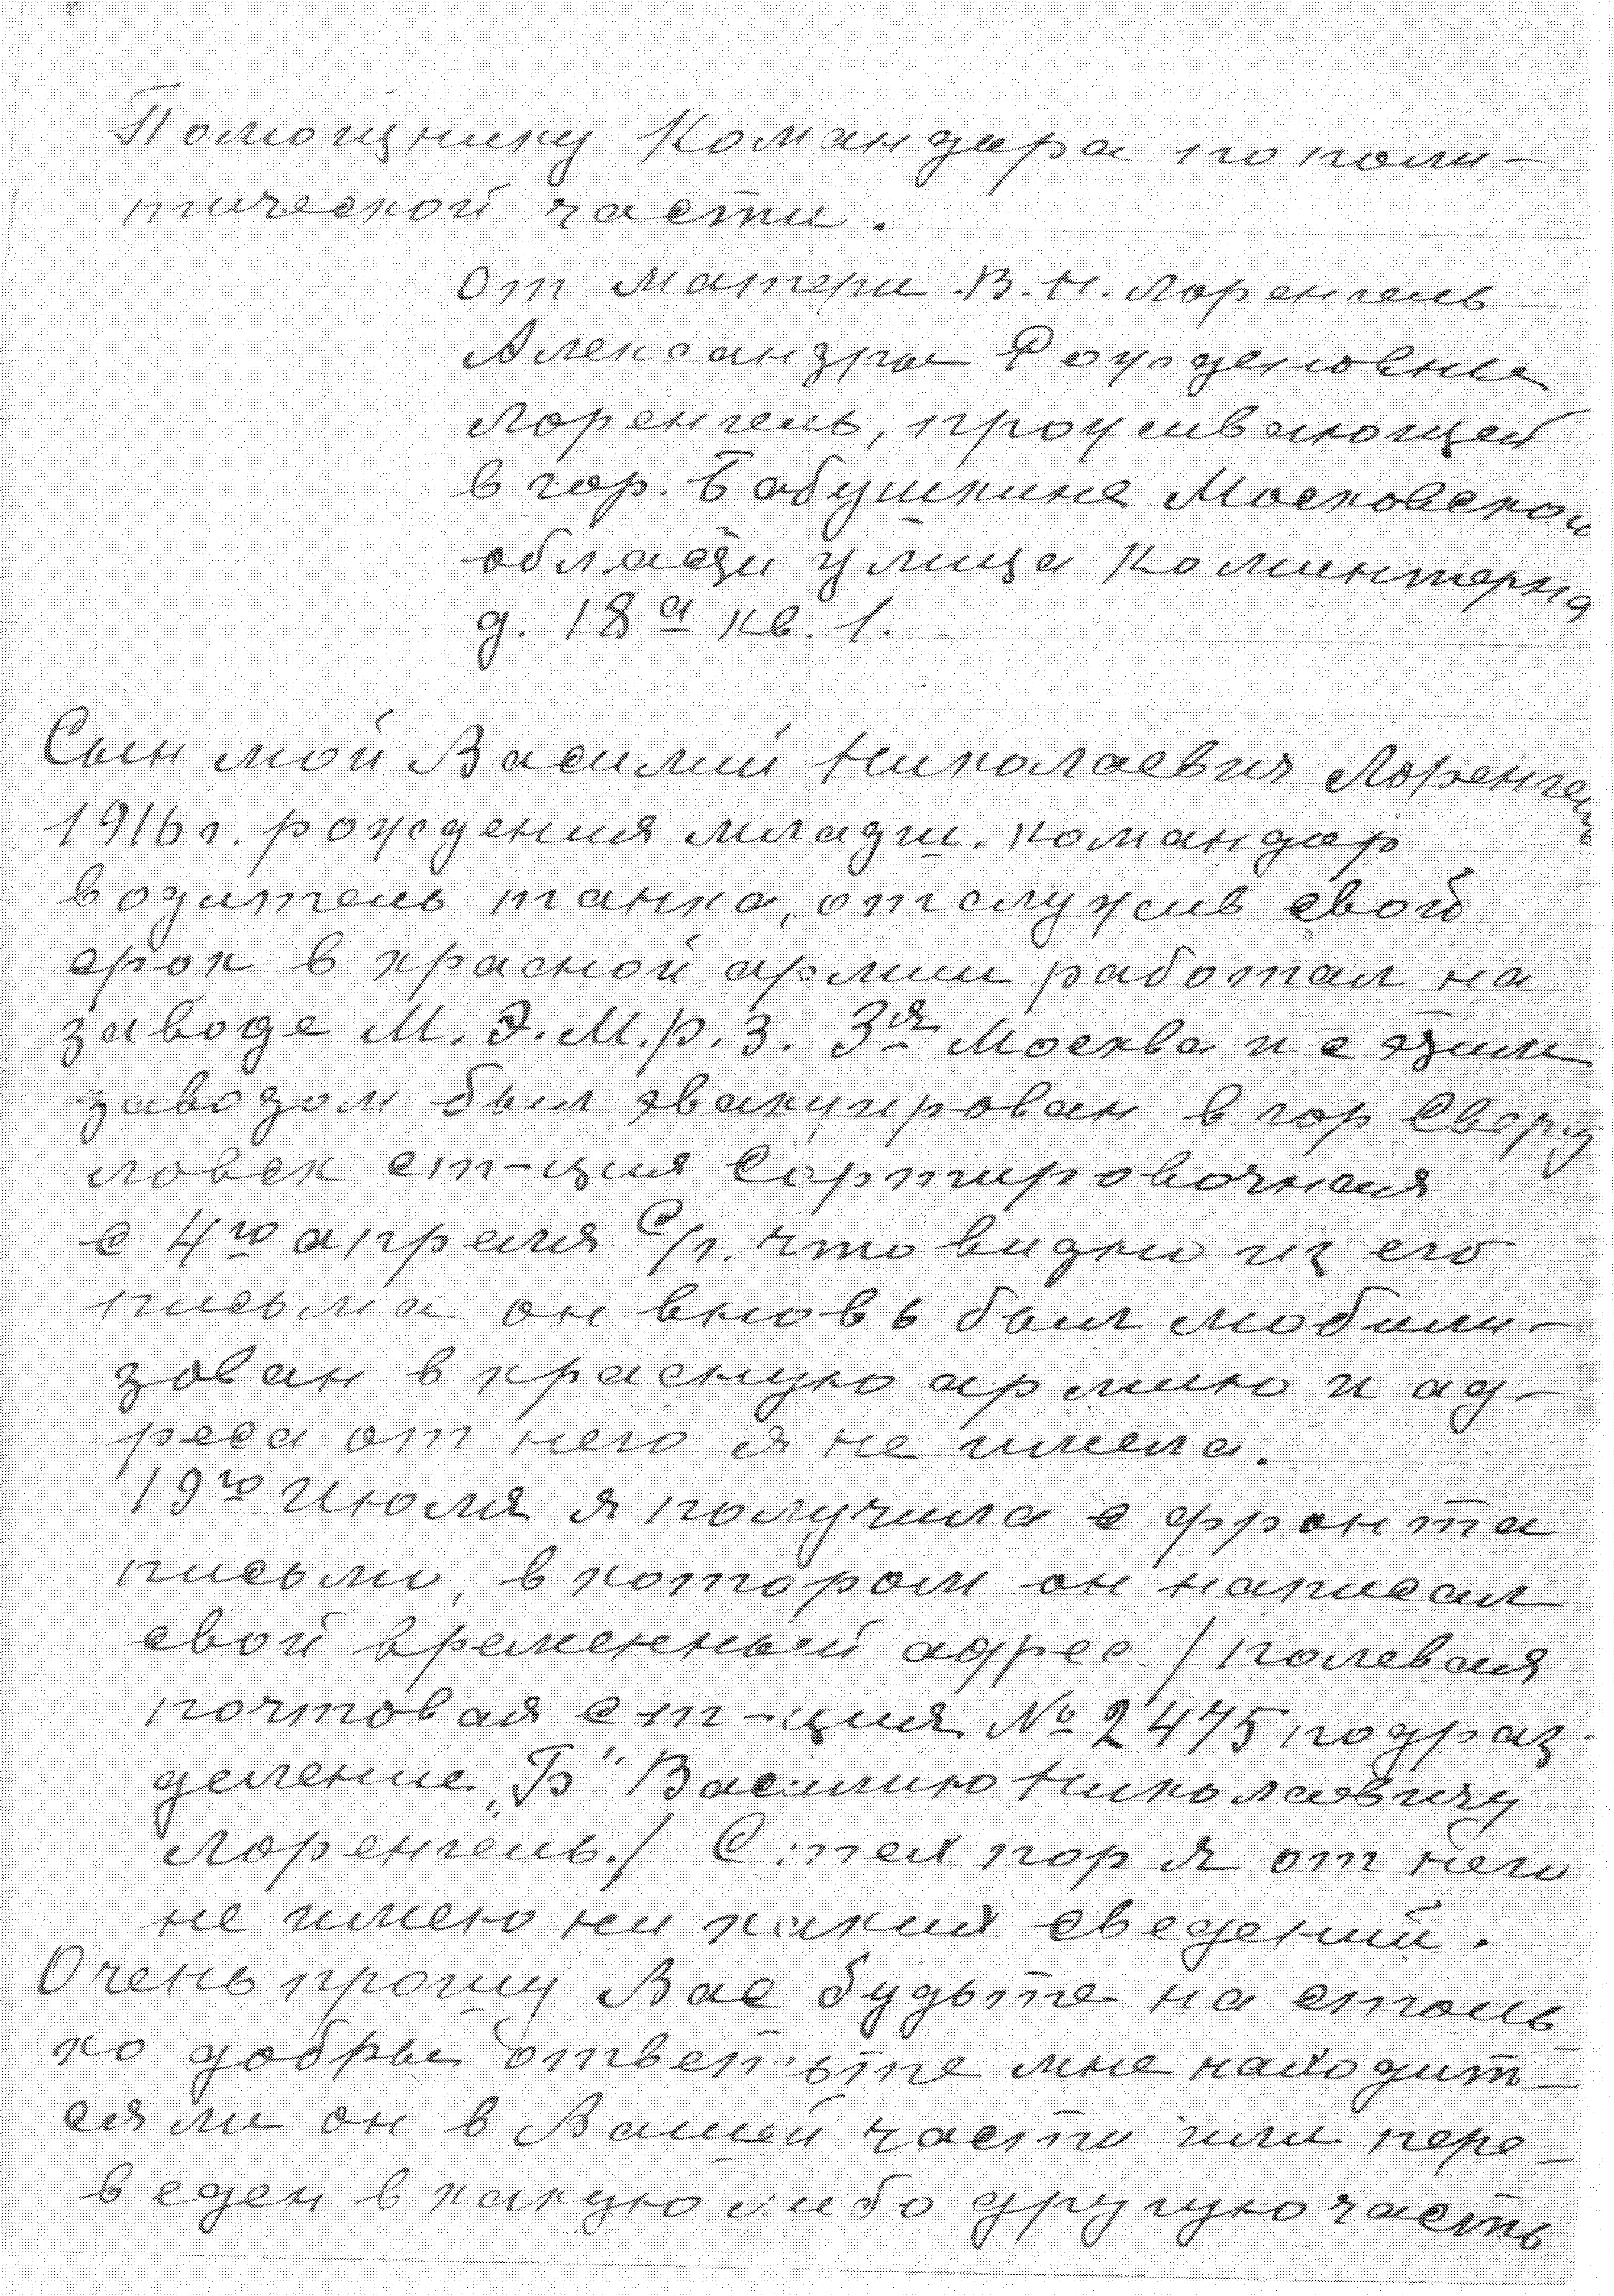 Помощнику Командира по поли-
тической части.
от матери В.Н. Лоренгель
Александры Рожденовны
Лоренгель, проживающей
в гор. Бабушкине Московской
области улица Коминтерна
д. 18а кв. 1.
Сын мой Василий Николаевич Лоренгель
1916 г. рождения младш. командир
водитель танка, отслужив свой
срок в красной армии работал на
заводе М.Э.М.р.З. 3я Москва и с этим
заводом был эвакуирован в гор Сверд
ловск ст-ция Сортировочная
с 4го апреля с/г. что видно из его
письма он вновь был мобили-
зован в красную армию и ад-
реса от него я не имела.
19го Июля я получила с фронта
письмо, в котором он написал
свой временный адрес. / полевая
почтовая ст-ция № 2475 подраз-
деление „Б" Василию Николаевичу
Лоренгель./ С тех пор я от него
не имею ни каких сведений.
Очень прошу Вас будьте на столь-
ко добры ответьте мне находит-
ся ли он в Вашей части или пере-
веден в какую либо другую часть